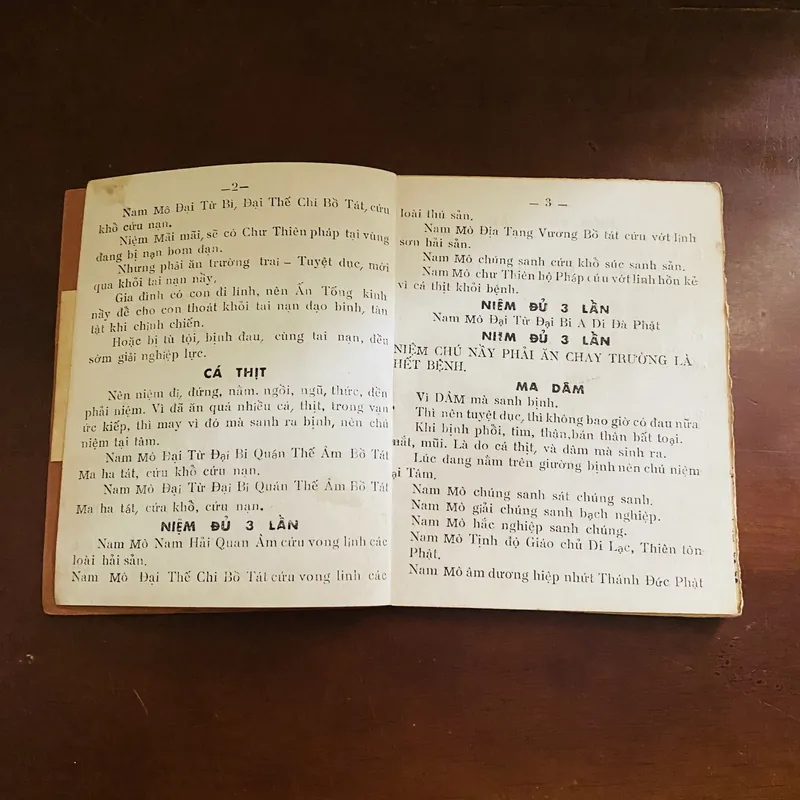 —2—
Nam Mô Đại Từ Bi, Đại Thế Chí Bồ Tát, cứu
khổ cứu nạn.
Niệm Mãi mãi, sẽ có Chư Thiên pháp tại vùng
đang bị nạn bom đạn.
Nhưng phải ăn trường trai – Tuyệt dục, mới
qua khỏi tai nạn này.
Gia đình có con đi lính, nên Ấn Tống kinh
này để cho con thoát khỏi tai nạn đạo binh, tàn
tật khi chinh chiến.
Hoặc bị tù tội, bịnh đau, cùng tai nạn, đều
sớm giải nghiệp lực.
CÁ THỊT
Nên niệm đi, đứng, nằm, ngồi, ngũ, thức, đền
phải niệm. Vì đã ăn quá nhiều cá, thịt, trong vạn
ức kiếp, thì may vì đó mà sanh ra bịnh, nên chú
niệm tại tâm.
Nam Mô Đại Từ Đại Bi Quán Thế Âm Bồ Tát
Ma ha tát, cứu khổ cứu nạn.
Nam Mô Đại Từ Đại Bi Quán Thế Âm Bồ Tát
Ma ha tát, cứa khổ, cứu nạn.
NIỆM ĐỦ 3 LẦN
Nam Mô Nam Hải Quan Âm cứu vong linh các
loài hải sản.
Nam Mô Đại Thế Chí Bồ Tát cứu vong linh các
— 3 —
loài thú sản.
Nam Mô Địa Tạng Vương Bồ tát cứu vớt linh
sơn hải sản.
Nam Mô chúng sanh cứu khổ súc sanh sản.
Nam Mô chư Thiên hộ Pháp cứu vớt linh hồn kẻ
vì cá thịt khỏi bệnh.
NIỆM ĐỦ 3 LẦN
Nam Mô Đại Từ Đại Bi A Di Đà Phật
NIỆM ĐỦ 3 LẦN
NIỆM CHÚ NÀY PHẢI ĂN CHAY TRƯỜNG LÀ
HẾT BỆNH.
MA DÂM
Vì DÂM mà sanh bịnh.
Thì nên tuyệt dục, thì không bao giờ có đau nữa
Khi bịnh phổi, tim, thận, bán thân bất toại.
mắt, mũi. Là do cá thịt, và dâm mà sinh ra.
Lúc đang nằm trên giường bịnh nên chú niệm
ại Tâm.
Nam Mô chúng sanh sát chúng sanh.
Nam Mô giải chúng sanh bạch nghiệp.
Nam Mô hắc nghiệp sanh chúng.
Nam Mô Tịnh độ Giáo chủ Di Lạc, Thiên tôn
Phật.
Nam Mô âm dương hiệp nhứt Thánh Đức Phật